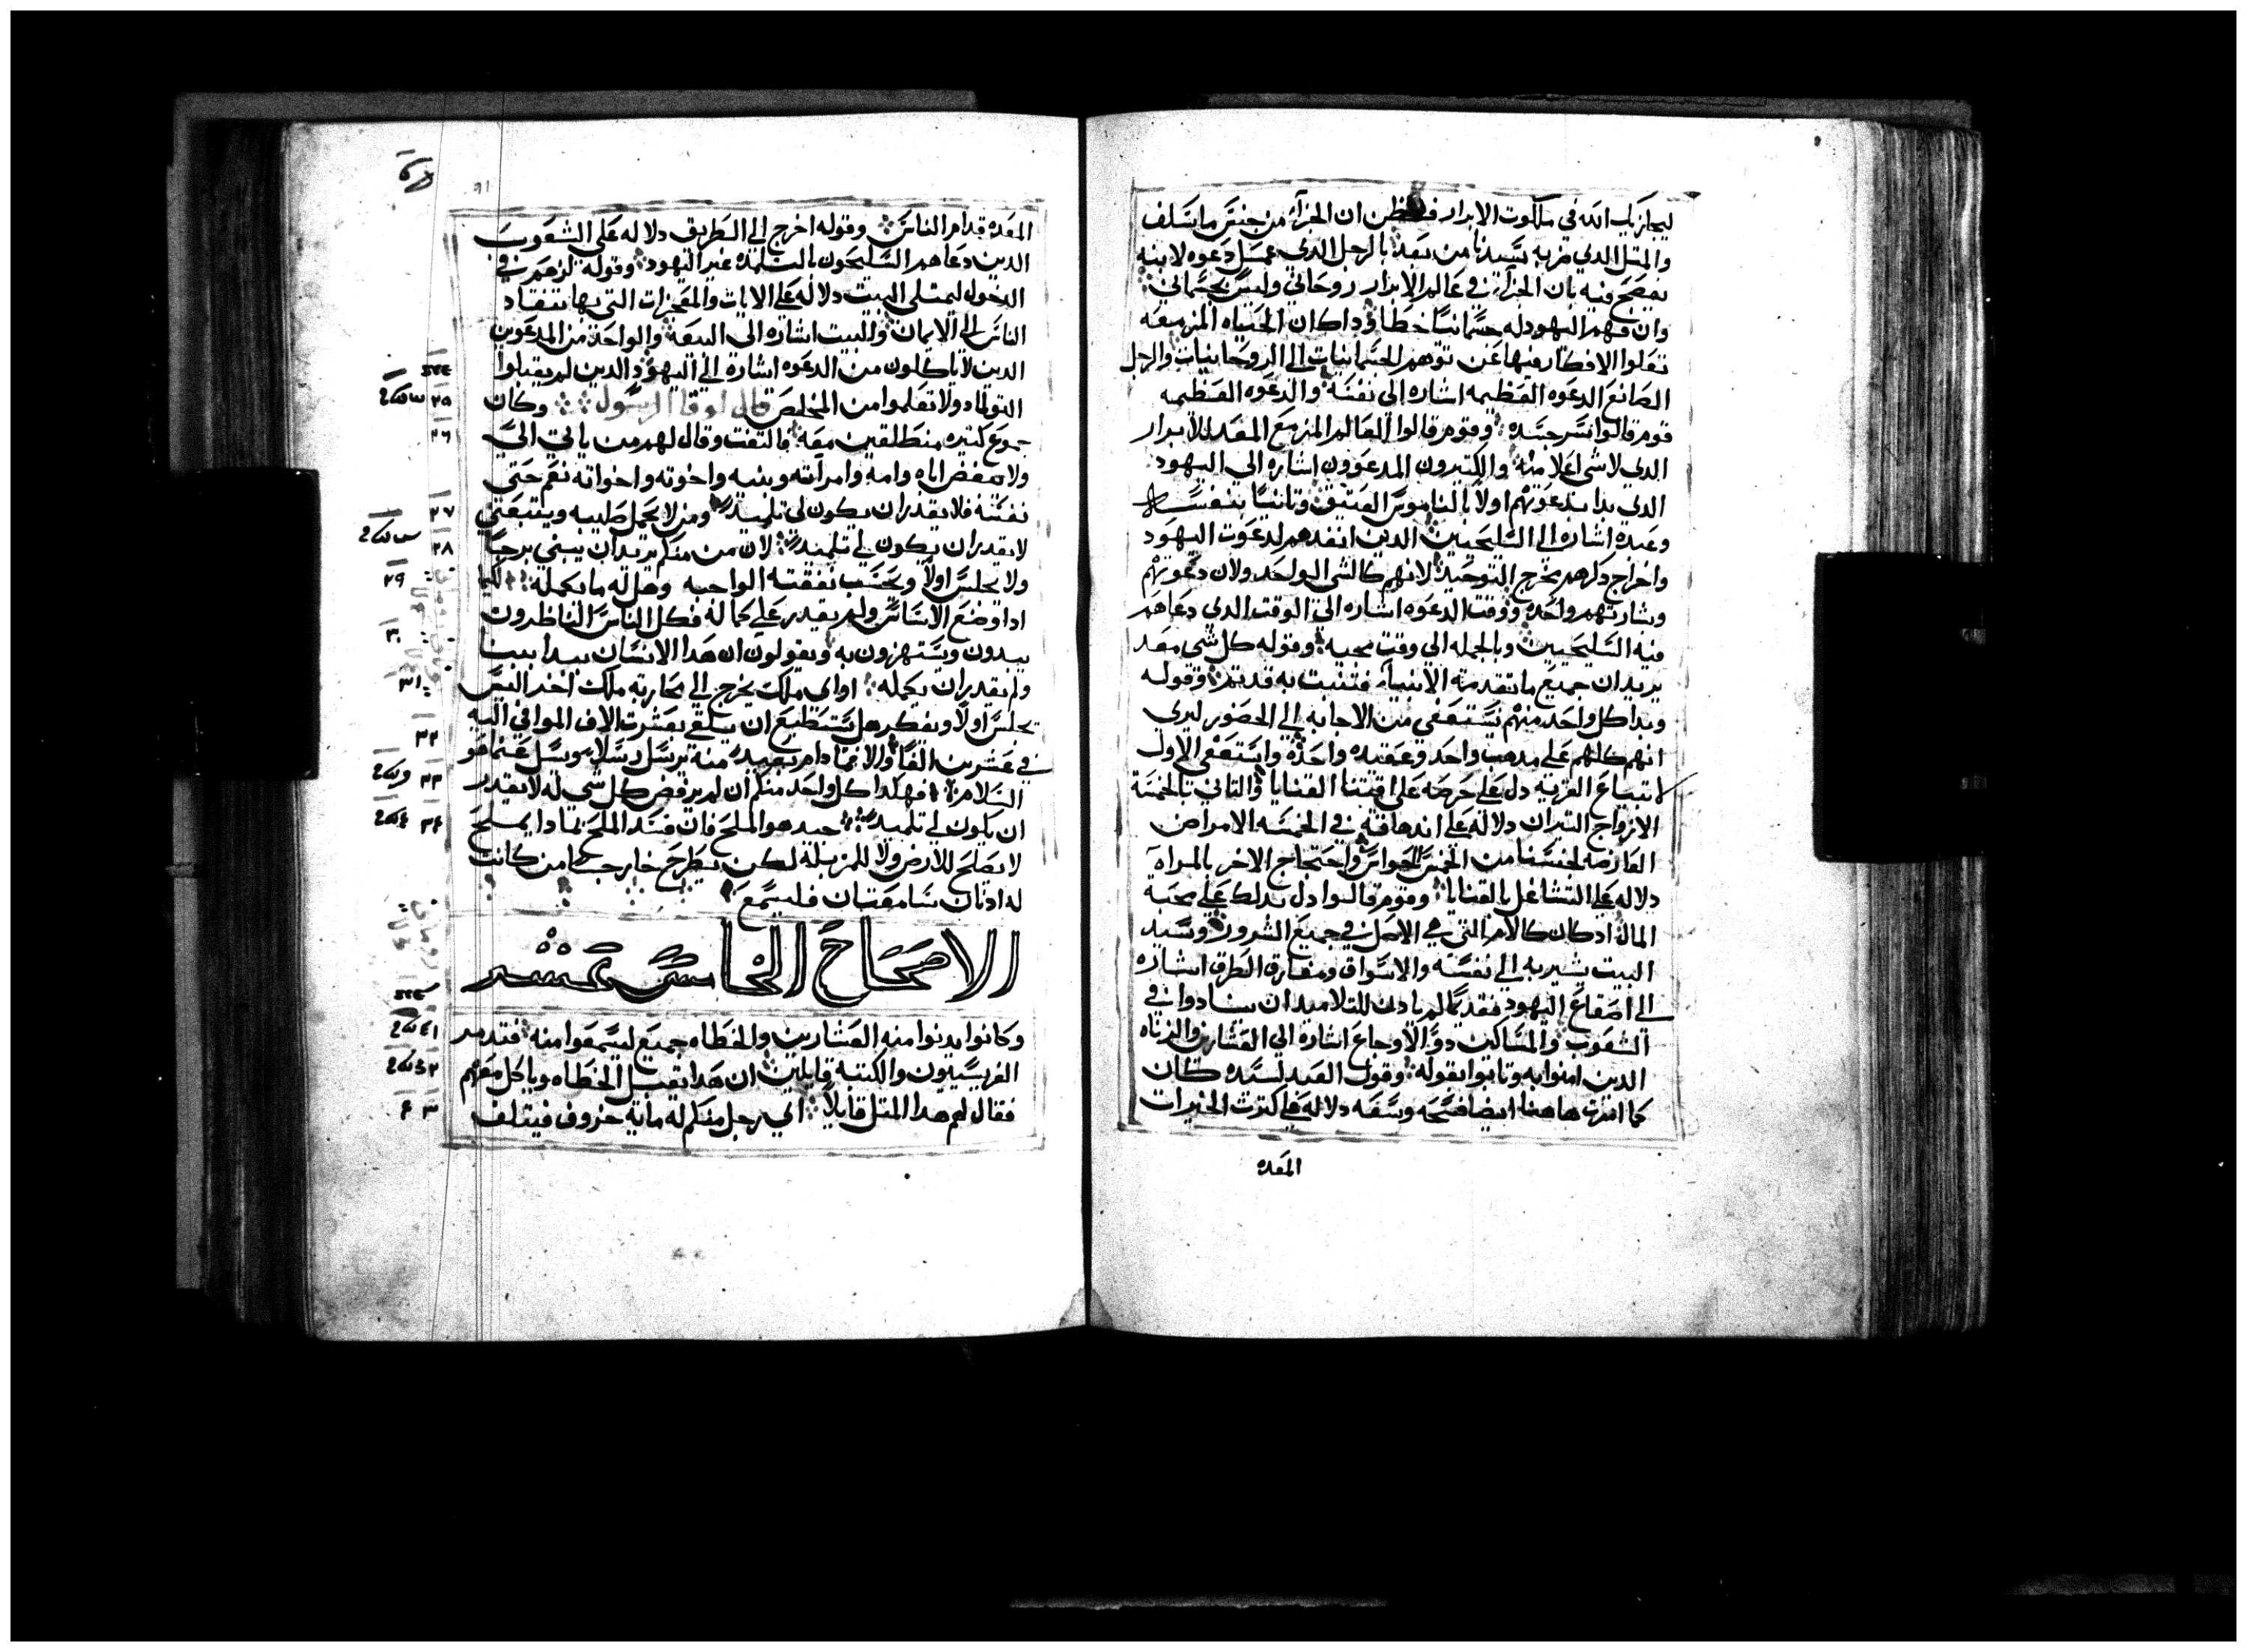 ليجازيك الله في ملكوت الابرار فظن ان الجزاء من جنس ماسلف
والمتل الدي ضربه سيدنا من بعد بالرجل الدي عمل دعوه لابنه
يفصح فيه بان الجزاء في عالم الابرار روحاني وليس بجسماني
وان فهم اليهود له جسمانيا خطا وداكان الحياه المزمعه
تعلوا الافكار فيها عن توهم الجسمانيات الى الروحانيات والرجل
الصانع الدعوه العظيمه اشاره الى نفسه والدعوه العظيمه
قوم قالوا سر جسده وقوم قالوا العالم المزمع المعد للابرار
الدي لاشي اعلا منه والكتيرون المدعوون اشاره الي اليهود
الدي بدا بدعوتهم اولا بالناموس العتيق وتانيا بنفسه
وعبده اشاره الى السليحيين الدين انفدهم لدعوت اليهود
واخراج دكرهم مخرج التوحيد لانهم كالشي الواحد ولان دعوتهم
وبشارتهم واحده ووقت الدعوه اشاره الى الوقت الدي دعاهم
فيه السليحيين وبالجمله الي وقت مجيه وقوله كل شي معد
يريد ان جميع ماتقدمة الانبياء فتنبت به قد تم وقوله
وبدا كل واحد منهم يستعفي من الاجابه الي الحضور ليري
انهم كلهم على مدهب واحد وعقيده واحده واستعفى الاول
لابتياع القريه دل على حرصه على اقتنا القنايا والتاني بالخمسة
الازواج التيران دلاله على اندهاقه في الخمسه الامراض
العارضه لخمسنا من الخمس الحواس واحتجاج الاخر بالمراه
دلاله على التشاغل بالقنايا وقوم قالوا دل بدلك على محبة
المال ادكان كالام التي هي الاصل في جميع الشرور وسيد
البيت يشير به الي نفسه والاسواق ومفارق الطرق اشاره
الى اصقاع اليهود فقديما لم يادن للتلاميد ان ينادوا في
الشعوب والمساكين دوا الاوجاع اشاره الي العشارين والزناه
الدين امنوا به وتابوا بقوله وقول العبد لسيده كان
كما امرت هاهنا ايضا فسحه وسعه دلاله على كترت الخيرات
المعده
المعده قدام الناس وقوله اخرج الي الطريق دلاله على الشعوب
الدين دعاهم السليحون بالتلمده غير اليهود وقوله لزهم في
الدخول ليمتلي البيت دلاله على الايات والمعجزات التي بها تنقاد
الناس الى الايمان والبيت اشاره الى البيعه والواحد من المدعوين
الدين لا ياكلون من الدعوه اشاره الى اليهود الدين لم يقبلوا
التولماد ولا تعلموا من المخلص قال لوقا الرسول وكان
جموع كتيره منطلقين معه فالتفت وقال لهم من ياتي الي
ولا يبغض اباه وامه وامراته وبنيه واخوته واخواته نعم حتى
نفسه فلا يقدر ان يكون لي تلميد ومن لا يحمل صليبه ويتبعني
لا يقدر ان يكون لي تلميد لان من منكم يريد ان يبني برجا
ولا يجلس اولا ويحسب نفقته الواجبه وهل له ما يكمله لكيما
ادا وضع الاساس ولم يقدر على كماله فكل الناس الناظرون
يبدون ويستهزون به ويقولون ان هدا الانسان بدا يبنا
ولم يقدر ان يكمله اواى ملك يخرج الي محاربة ملك اخر اليس
يجلس اولا ويفكر هل يستطيع ان يلقي بعشرت الاف الموافي اليه
في عشرين الفا والا فما دام بعيد منه يرسل رسلا ويسل عنما هو
السلام فهكدا كل واحد منكم ان لم يرفض كل شي له لا يقدر
ان يكون لي تلميد جيد هو الملح فان فسد الملح بمادا يملح
لا يصلح للارض ولا للمزبله لكن يطرح خارجا من كانت
له ادنان سامعتان فليسمع
الاصحاح الخامس عشر
وكانوا يدنوا منه العشارين والخطاه جميع ليسمعوا منه فتدمر
الفريسيون والكتبه قايلين ان هدا يقبل الخطاه وياكل معهم
فقال لهم هدا المتل قايلا اي رجل منكم له ماية خروف فيتلف
٢٦
٢٧
٢٨
٢٩
٣٠
٣١
٣٢
٣٣
٣٤